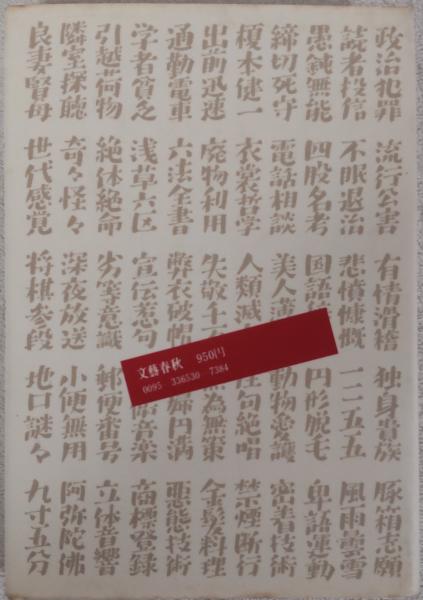 政治犯罪 流行公害 有情滑稽 独身貴族 豚箱志願
読者投信 不眠退治 悲憤慷慨 一二五五 風雨曇雪
愚鈍無能 四股名考 国語 円形脱毛 卑語運動
締切死守 電話相談 美人薄 動物愛護 密着技術
榎本健一 衣裳哲学 人類滅 句絶唱 禁煙断行
出前迅速 廃物利用 失敬千 為無策 金髪料理
通勤電車 六法全書 弊衣破帽 婦円満 悪態技術
学者貧乏 浅草六区 宣伝惹句 音楽 商標登録
引越荷物 絶体絶命 劣等意識 郵便番号 立体音響
隣室探聴 奇々怪々 深夜放送 小便無用 阿弥陀佛
良妻賢母 世代感覚 将棋参段 地口謎々 九寸五分
文藝春秋 950円
0095 336530 7384